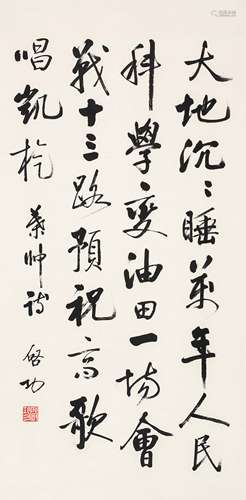 大地沉〻睡萬年人民
科學變油田一場會
戰十三路預祝高歌
唱凱旋 葉帥詩 啓功